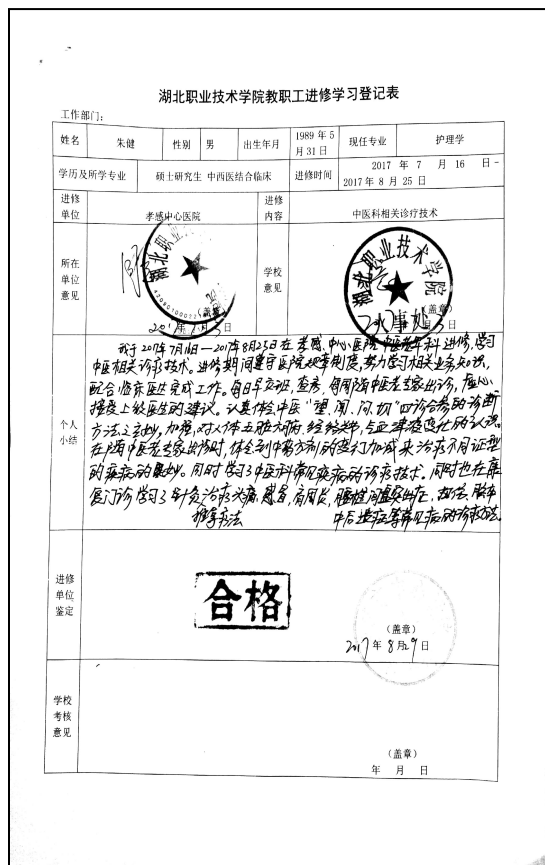 湖北职业技术学院教职工进修学习登记表
工作部门:
姓名 朱健 性别 男 出生年月 1989 年 5 月 31 日 现任专业 护理学
学历及所学专业 硕士研究生 中西医结合临床 进修时间 2017 年 7 月 16 日 - 2017 年 8 月 25 日
进修单位 孝感中心医院 进修内容 中医科相关诊疗技术
所在单位意见 (盖章) 学校意见 湖北职业技术学院 人事处
个人小结
我于2017年7月16日—2017年8月25日在孝感中心医院中医老年科进修,学习
中医相关诊疗技术。进修期间遵守医院规章制度,努力学习相关业务知识,
配合临床医生完成工作。每日早交班,查房,每周随中医老专家出诊,虚心
接受上级医生的建议。认真体会中医“望、闻、问、切”四诊合参的诊断
方法之奥妙,加强对人体五脏六腑、经络
在随中医老专家出诊时,体会到中药方剂的变行加减来治疗不同证型
的疾病的奥妙。同时学习了中医科常见疾病的诊疗技术,同时也在康
复门诊学习了针灸治疗
推拿疗法 中后遗症等常见病的诊疗方法。
进修单位鉴定 合格
(盖章)
2017 年 8 月 29 日
学校考核意见
(盖章)
年 月 日